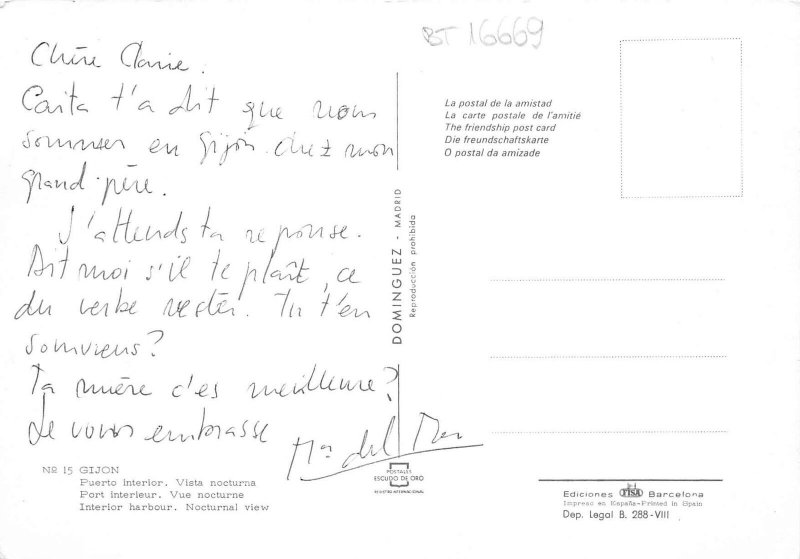 BT 16669
Chère Claire.
Carta t'a dit que nous
sommes en Gijón chez mon
grand-père.
J'attends ta reponse.
Dit moi s'il te plaît, ce
du verbe rester. Tu t'en
souviens?
Ta mière c'es meilleure?
Je vous embrasse
Mª del Mar
La postal de la amistad
La carte postale de l'amitié
The friendship post card
Die freundschaftskarte
O postal da amizade
DOMINGUEZ - MADRID
Reproducción prohibida
Nº 15 GIJON
Puerto interior. Vista nocturna
Port interieur. Vue nocturne
Interior harbour. Nocturnal view
POSTALES
ESCUDO DE ORO
REGISTRO INTERNACIONAL
Ediciones FISA Barcelona
Impreso en España-Printed in Spain
Dep. Legal B. 288-VIII